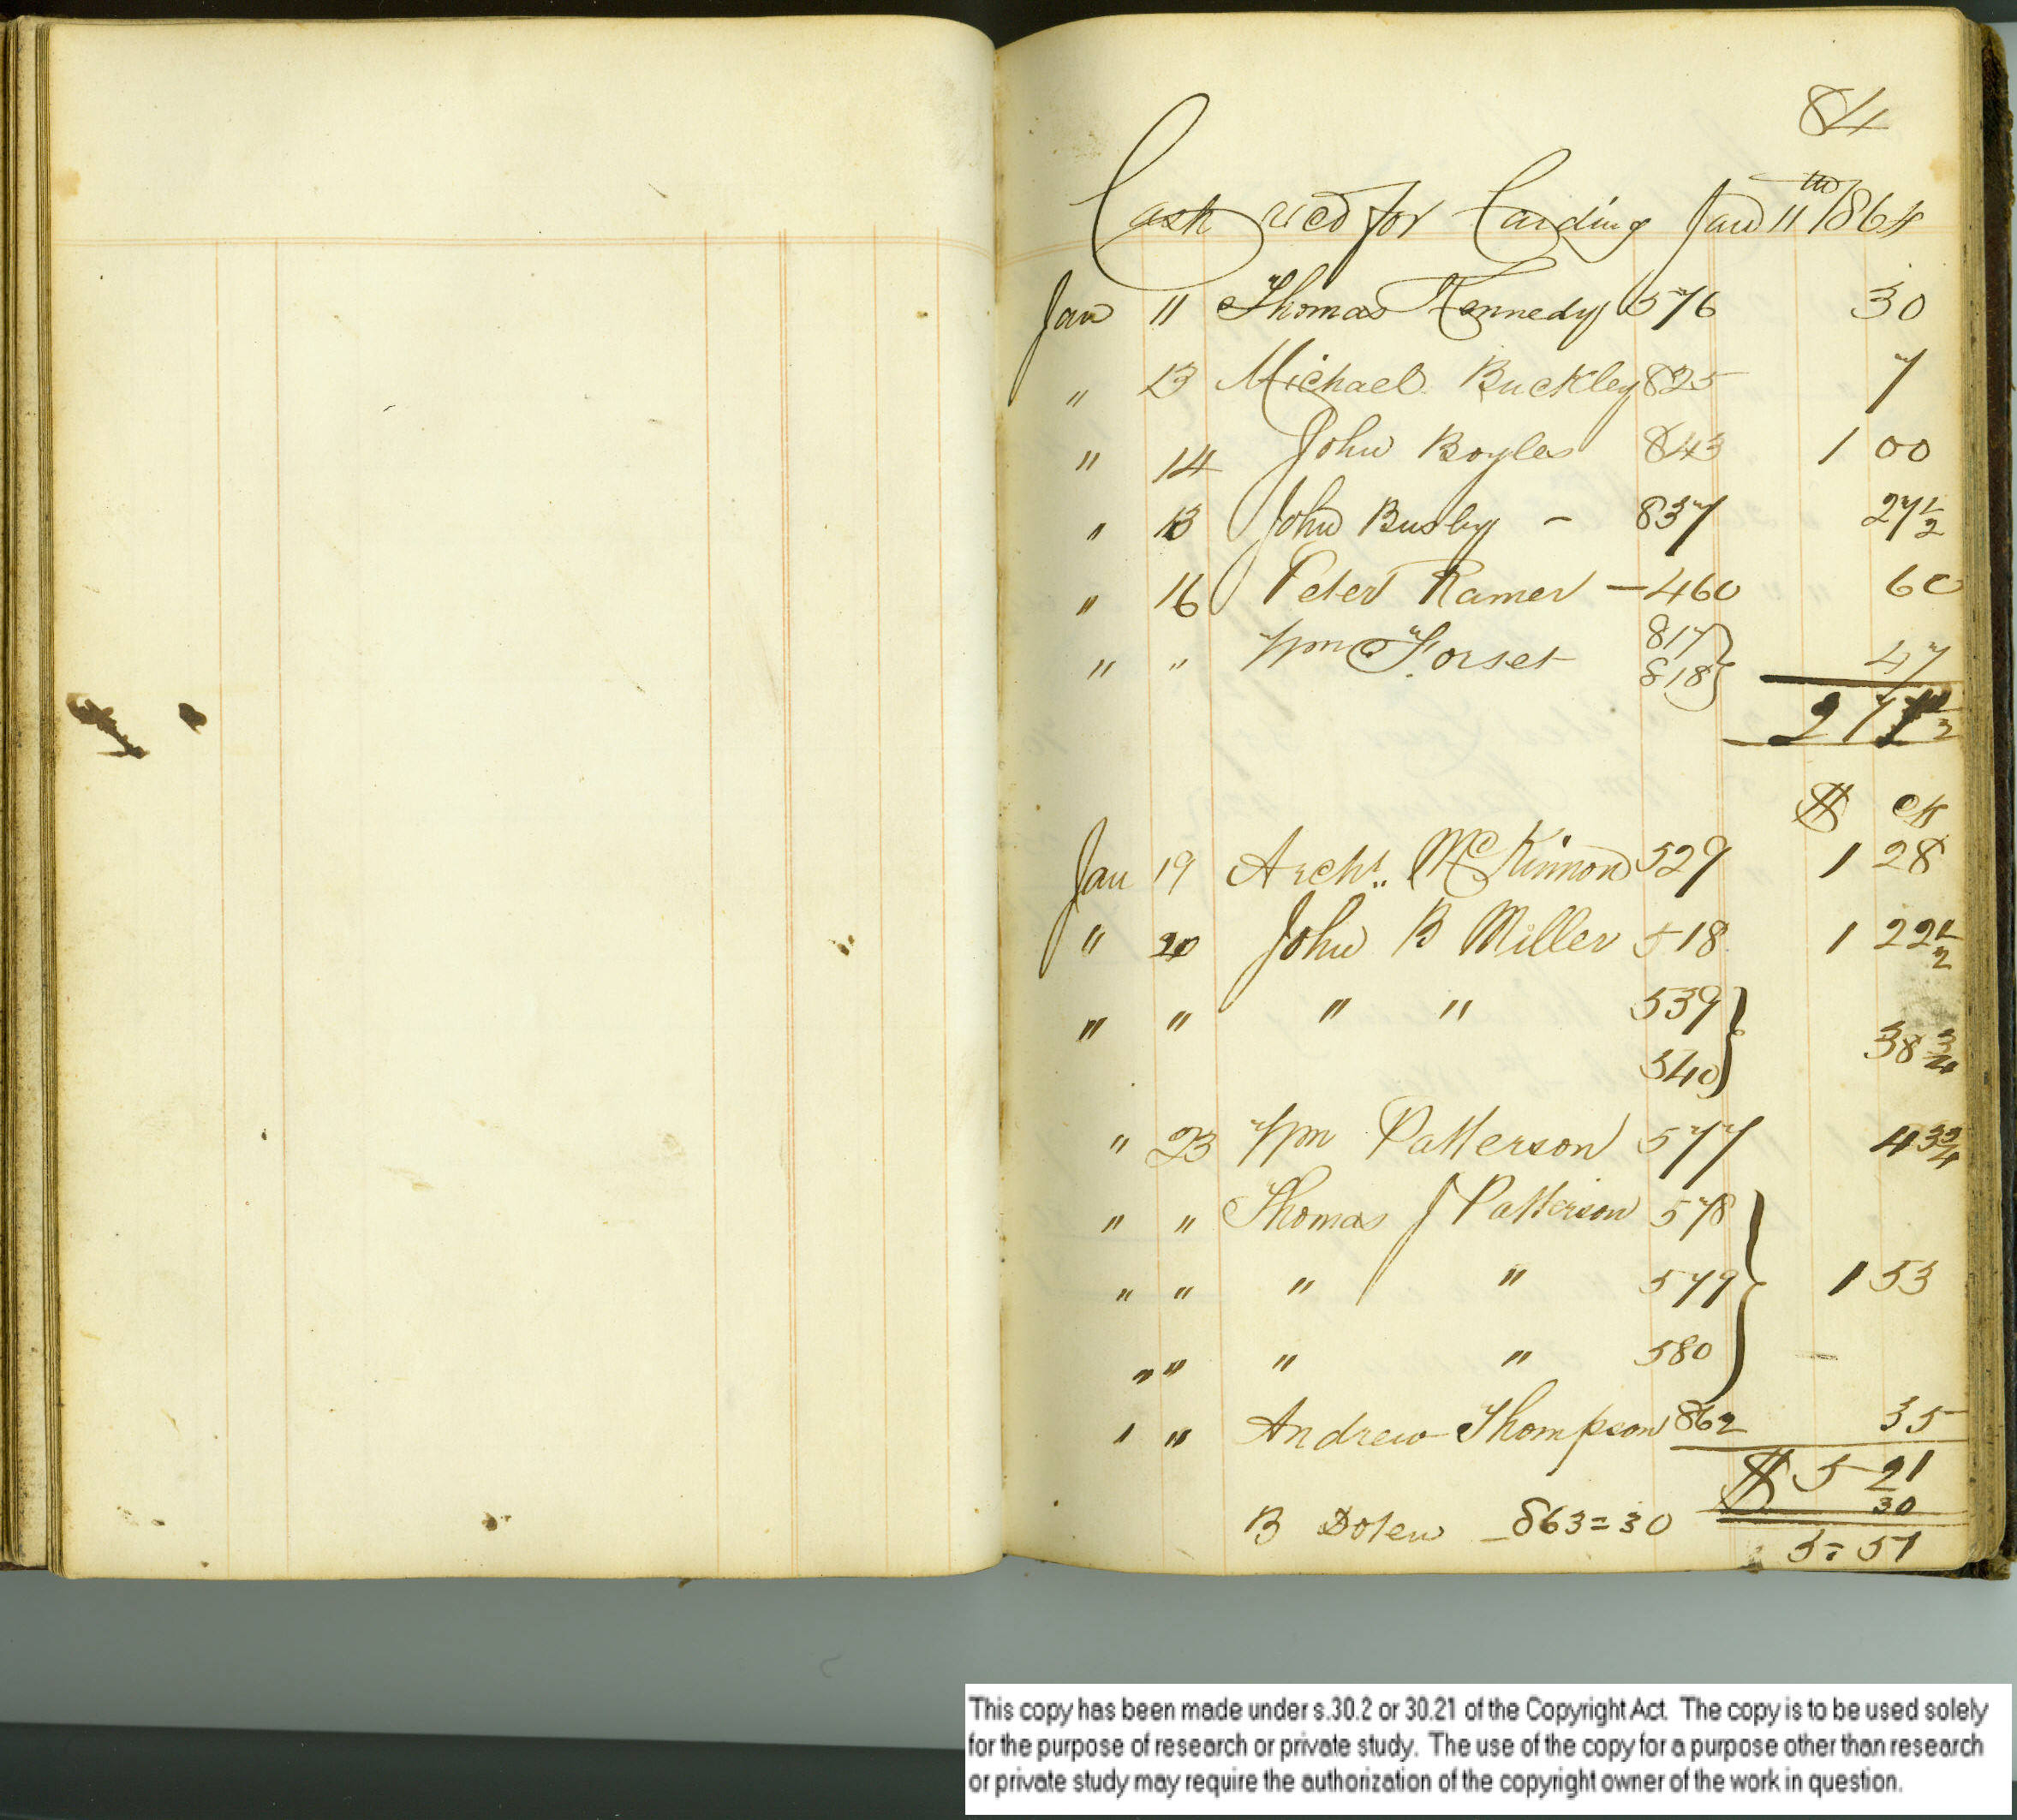 84
Cash recd for Carding Jan 11th 1864
Jan 11 Thomas Kennedy 576 30
" 13 Michael Buckley 825 7
" 14 John Boyles 843 1 00
" 13 John Busby - 837 27 1/2
" 16 Peter Ramer - 460 60
" " Wm Forset 817 } 47
818 }
2 71 1/2
$ cts
Jan 19 Archd McKinnon 529 1 28
" 20 John B Miller 518 1 22 1/2
" " " " 539 } 38 3/4
540 }
" 23 Wm Patterson 577 43 3/4
" " Thomas J Patterson 578 }
" " " " 579 } 1 53
" " " " 580 }
" " Andrew Thompson 862 35
$ 5 21
30
B Doten - 863 = 30
5 = 51
This copy has been made under s.30.2 or 30.21 of the Copyright Act. The copy is to be used solely
for the purpose of research or private study. The use of the copy for a purpose other than research
or private study may require the authorization of the copyright owner of the work in question.